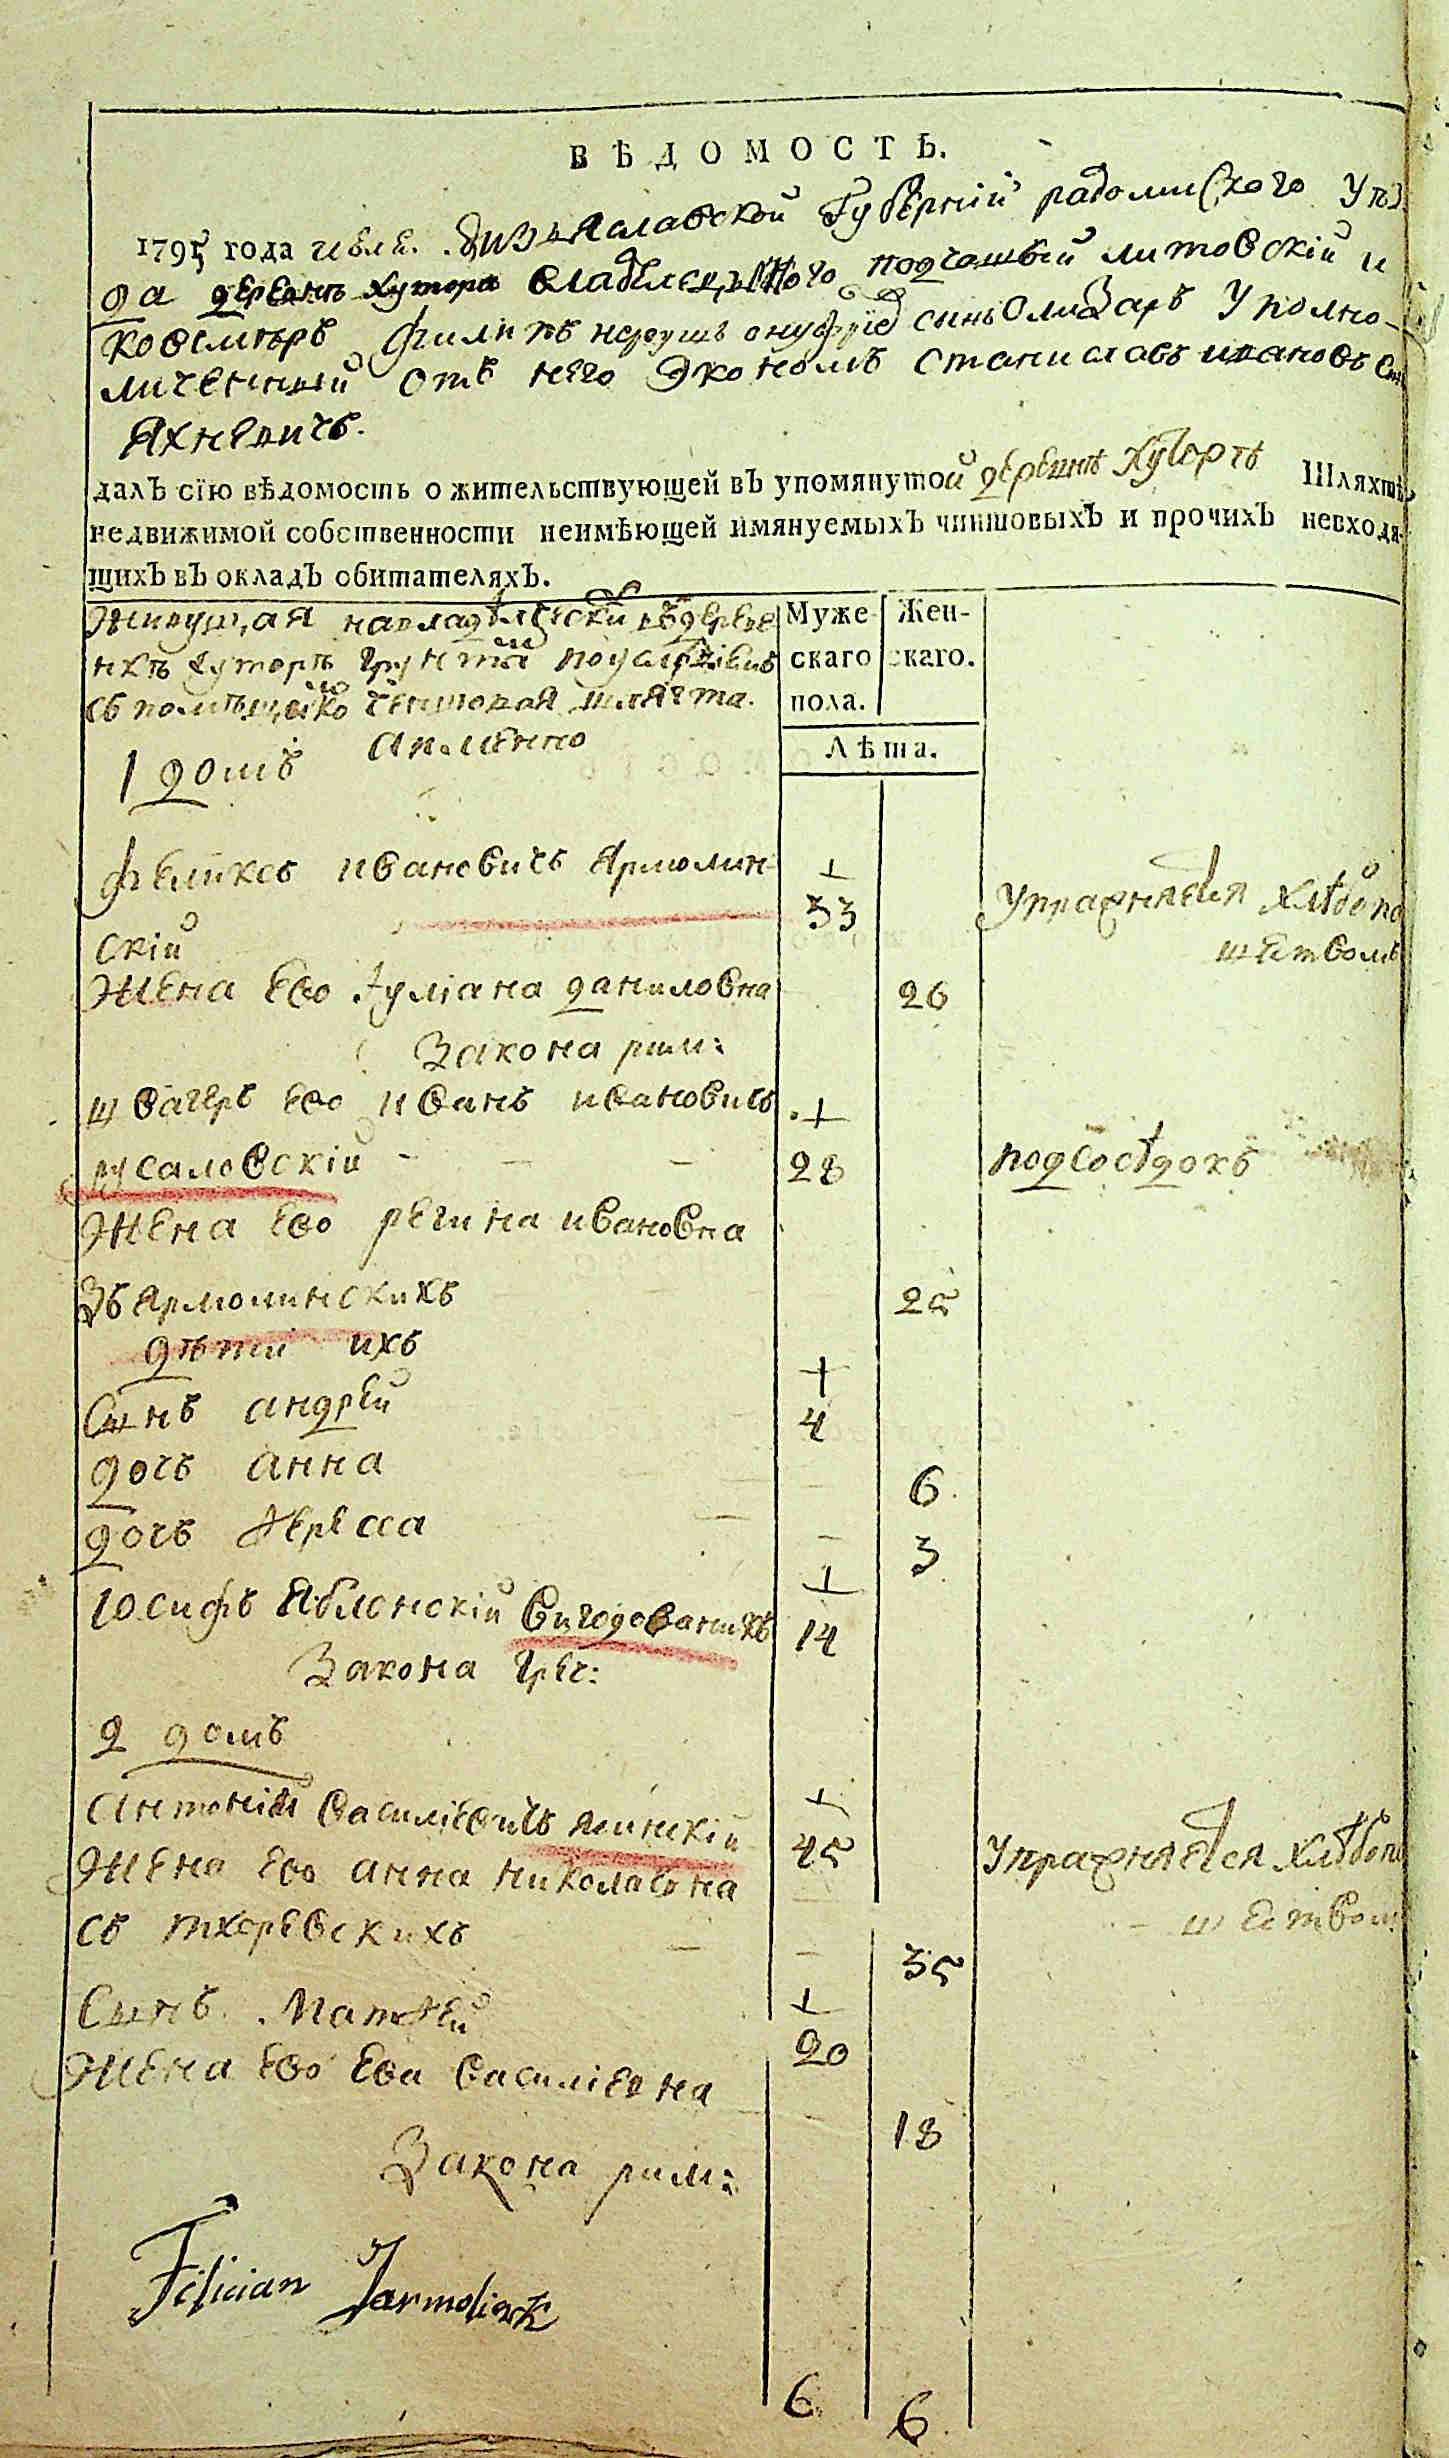 ВѢДОМОСТЬ.
1795 года июля. Изяславской Губѣрнїи радомиского Уѣз
да деревнѣ Хутора владѣлецъ подчашый литовскїй и
ковалѣръ филипъ нереушъ онуфрїев сынъ Олизаръ Уполно-
миченный отъ него Экономъ Станиславъ ивановъ
Яхневичъ.
далъ сїю вѣдомость о жительствующей въ упомянутой деревнѣ Хуторѣ Шляхтѣ,
недвижимой собственности неимѣющей имянуемыхъ чиншовыхъ и прочихъ невходя-
щихъ въ окладъ обитателяхъ.
Живущая на владѣлчески въ дерев
нѣ Хуторѣ грунтѣ
съ помѣщико чиншовая шляхта.
Муже- Жен-
скаго скаго.
пола.
Лѣта.
а именно
1 домъ
феликсъ ивановичъ Ярмолин- 33 Упражняетъся хлѣбопа
скїй шествомъ
Жена Ево Юлїана даниловна 26
Закона рим:
швагеръ Ево иванъ ивановичъ
русаловскїй - - - 28 подсосѣдокъ
Жена Ево регина ивановна
Зъ Ярмолинскихъ 25
дѣти ихъ
Сынъ андрей 4
дочъ анна 6
дочъ тереса 3
Юсифъ Яблонскїй вигодованикъ 14
Закона грец:
2 домъ
антонїй василїевичъ ясинскїй 45 Упражняется хлѣбопа
Жена Ево анна николаевна шествомъ
съ тхоревскихъ - - 35
Сынъ Матфей 20
Жена Ево Ева василїевна 18
Закона рим:
Felician Jarmolinsk
6 6